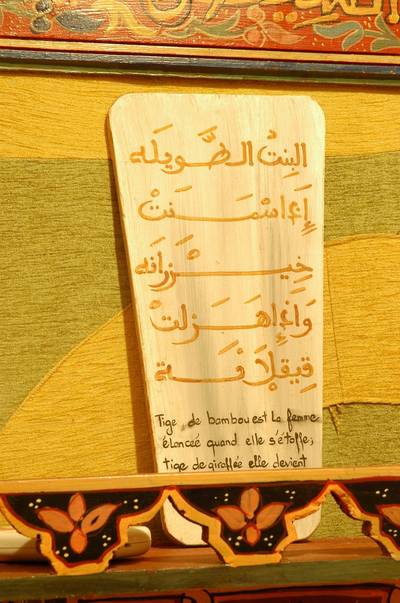 البِنتُ الطَّويلَه
إِذَا اسْمَنَتْ
خِيْزرَانَه
وَإِذَا هَزلتْ
Tige de bambou est la femme
élanceé quand elle s'étoffe;
tige de giroflée elle devient